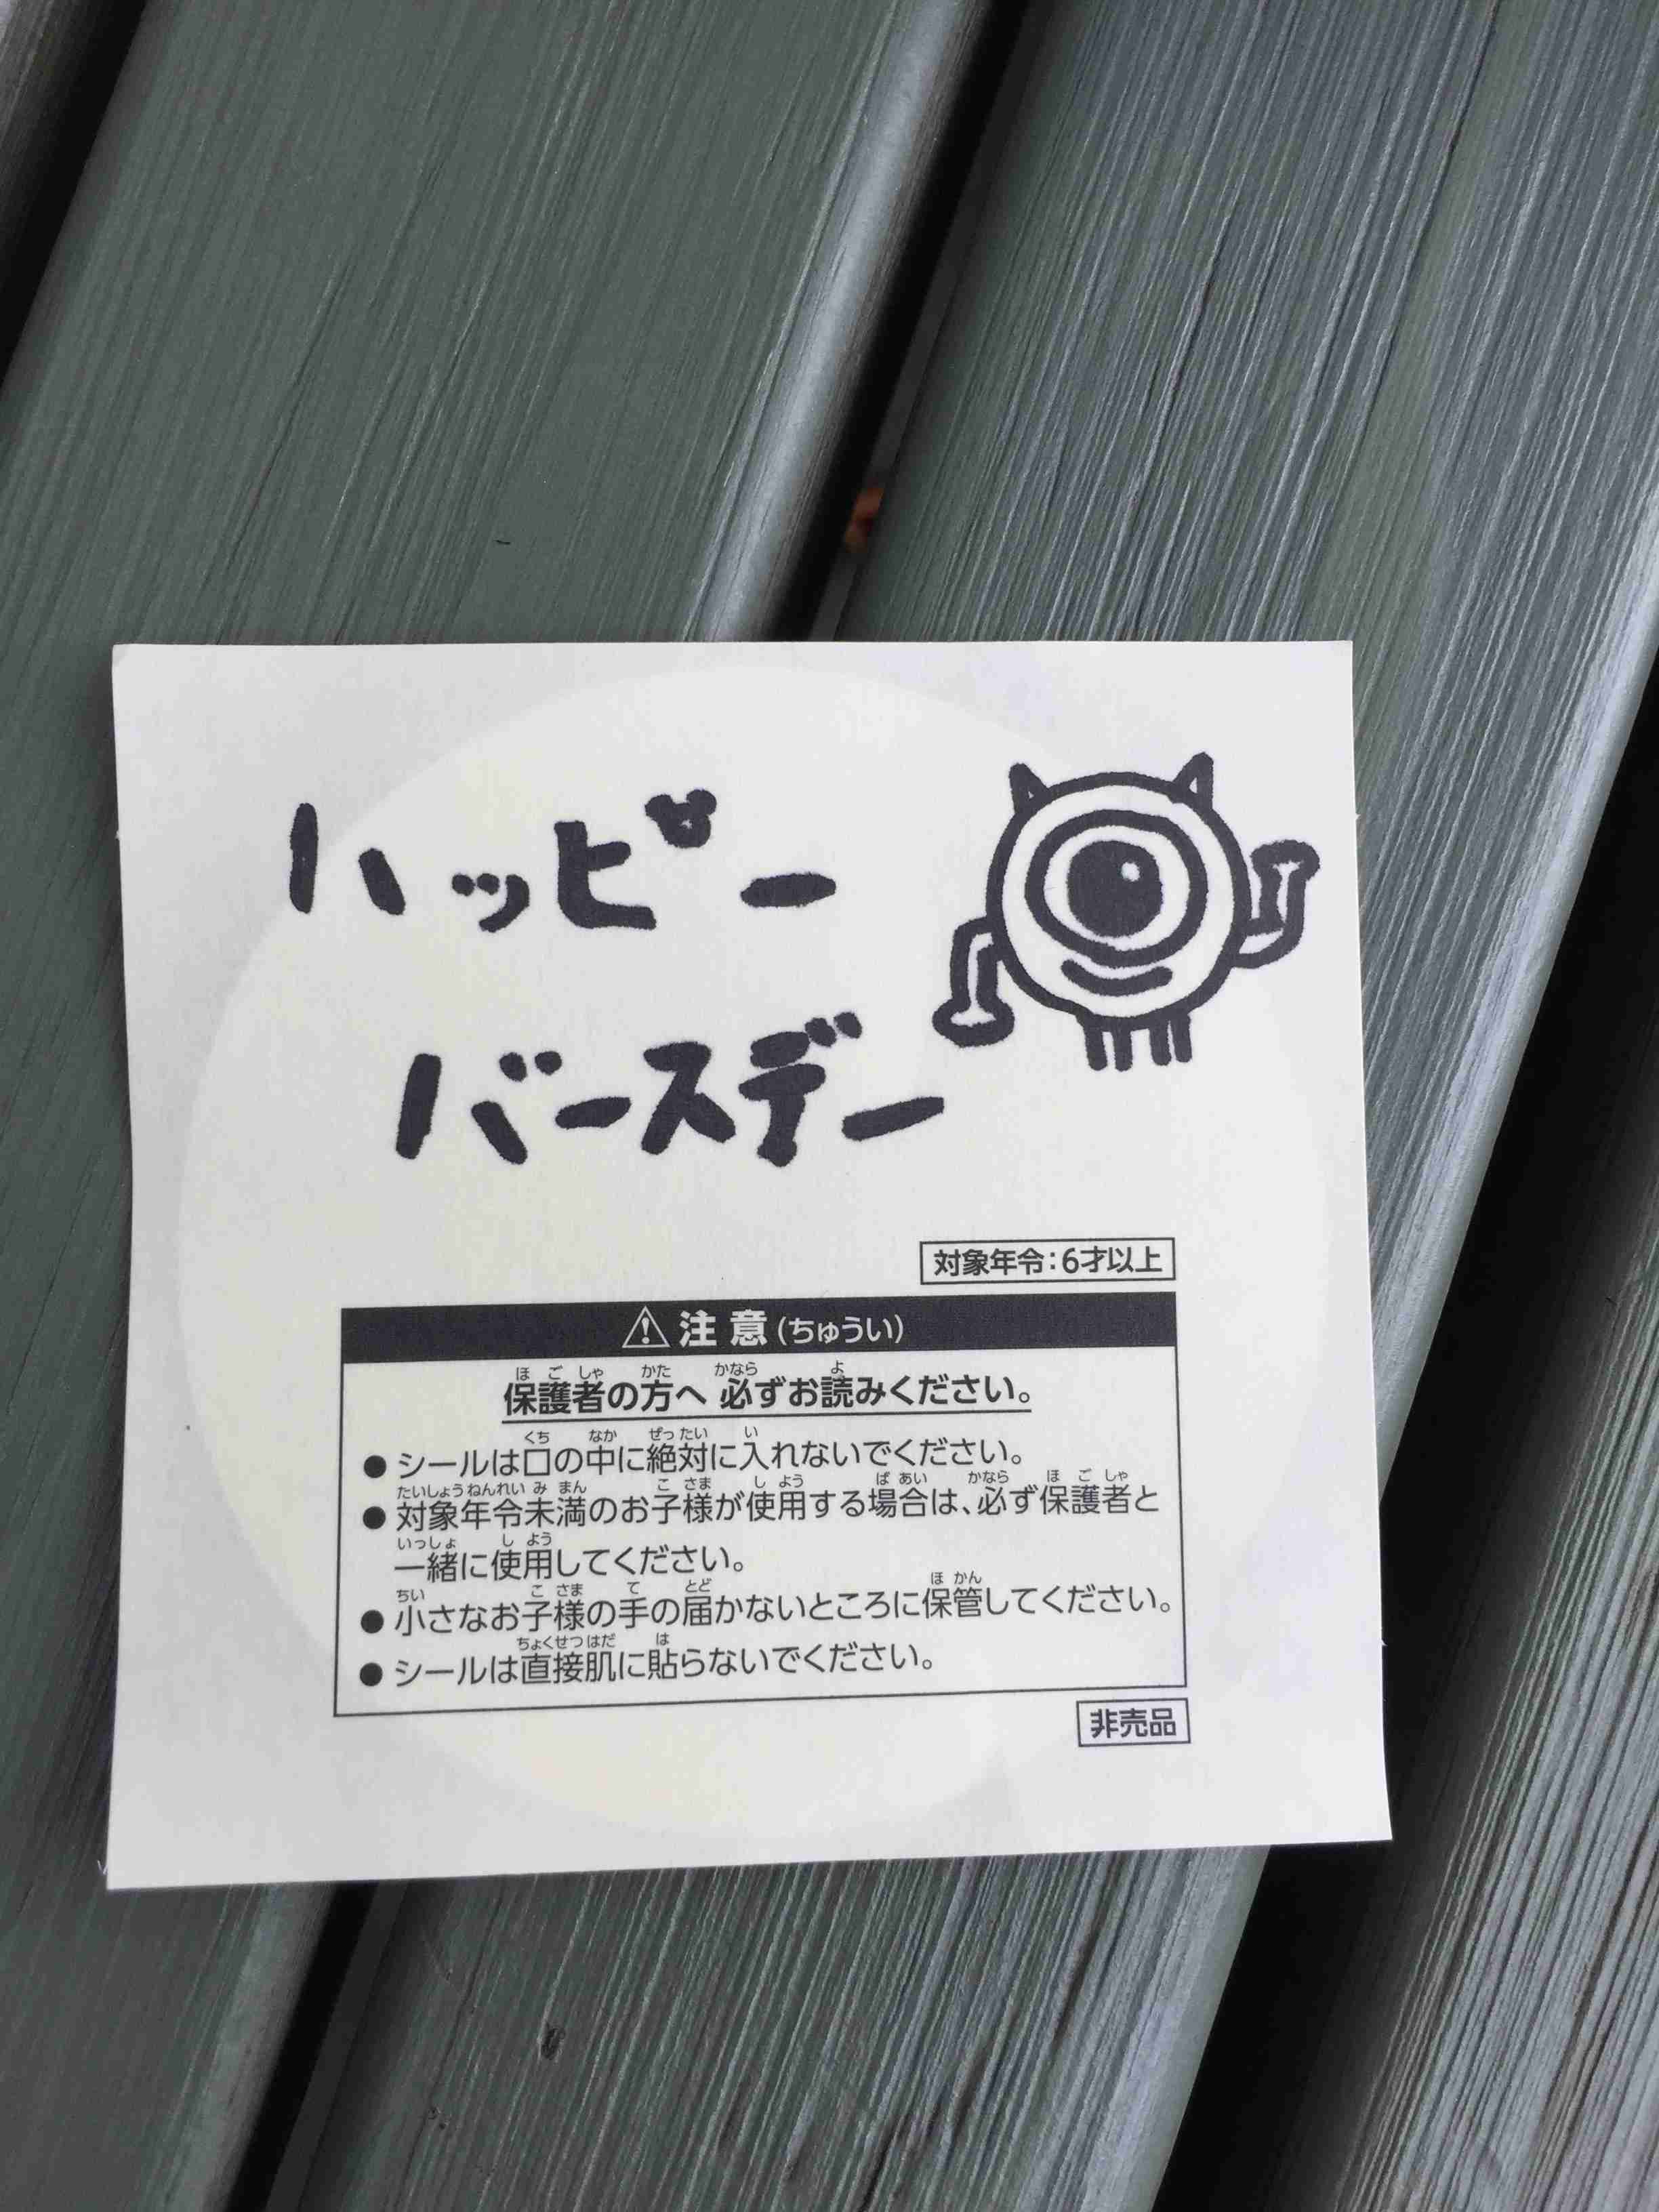 ハッピー
バースデー
対象年令:6才以上
注意(ちゅうい)
保護者の方へ 必ずお読みください。
●シールは口の中に絶対に入れないでください。
●対象年令未満のお子様が使用する場合は、必ず保護者と
一緒に使用してください。
●小さなお子様の手の届かないところに保管してください。
●シールは直接肌に貼らないでください。
非売品